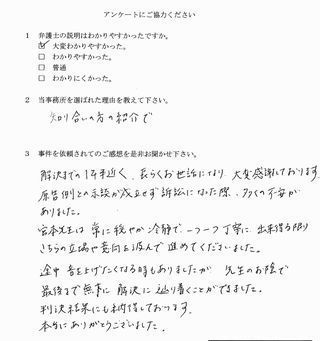 アンケートにご協力ください
1 弁護士の説明はわかりやすかったですか。
☑ 大変わかりやすかった。
□ わかりやすかった。
□ 普通
□ わかりにくかった。
2 当事務所を選ばれた理由を教えて下さい。
知り合いの方の紹介で
3 事件を依頼されてのご感想を是非お聞かせ下さい。
解決までの1年半近く、長らくお世話になり 大変感謝しております。
原告側との示談が成立せず 訴訟になった際、多くの不安が
ありました。
宮本先生は 常に穏やか 冷静で 一つ一つ丁寧に 出来得る限り
こちらの立場や意向を汲んで 進めてくださいました。
途中 音を上げたくなる時もありましたが 先生のお陰で
最後まで無事に 解決に辿り着くことができました。
判決結果にも納得しております。
本当にありがとうございました。